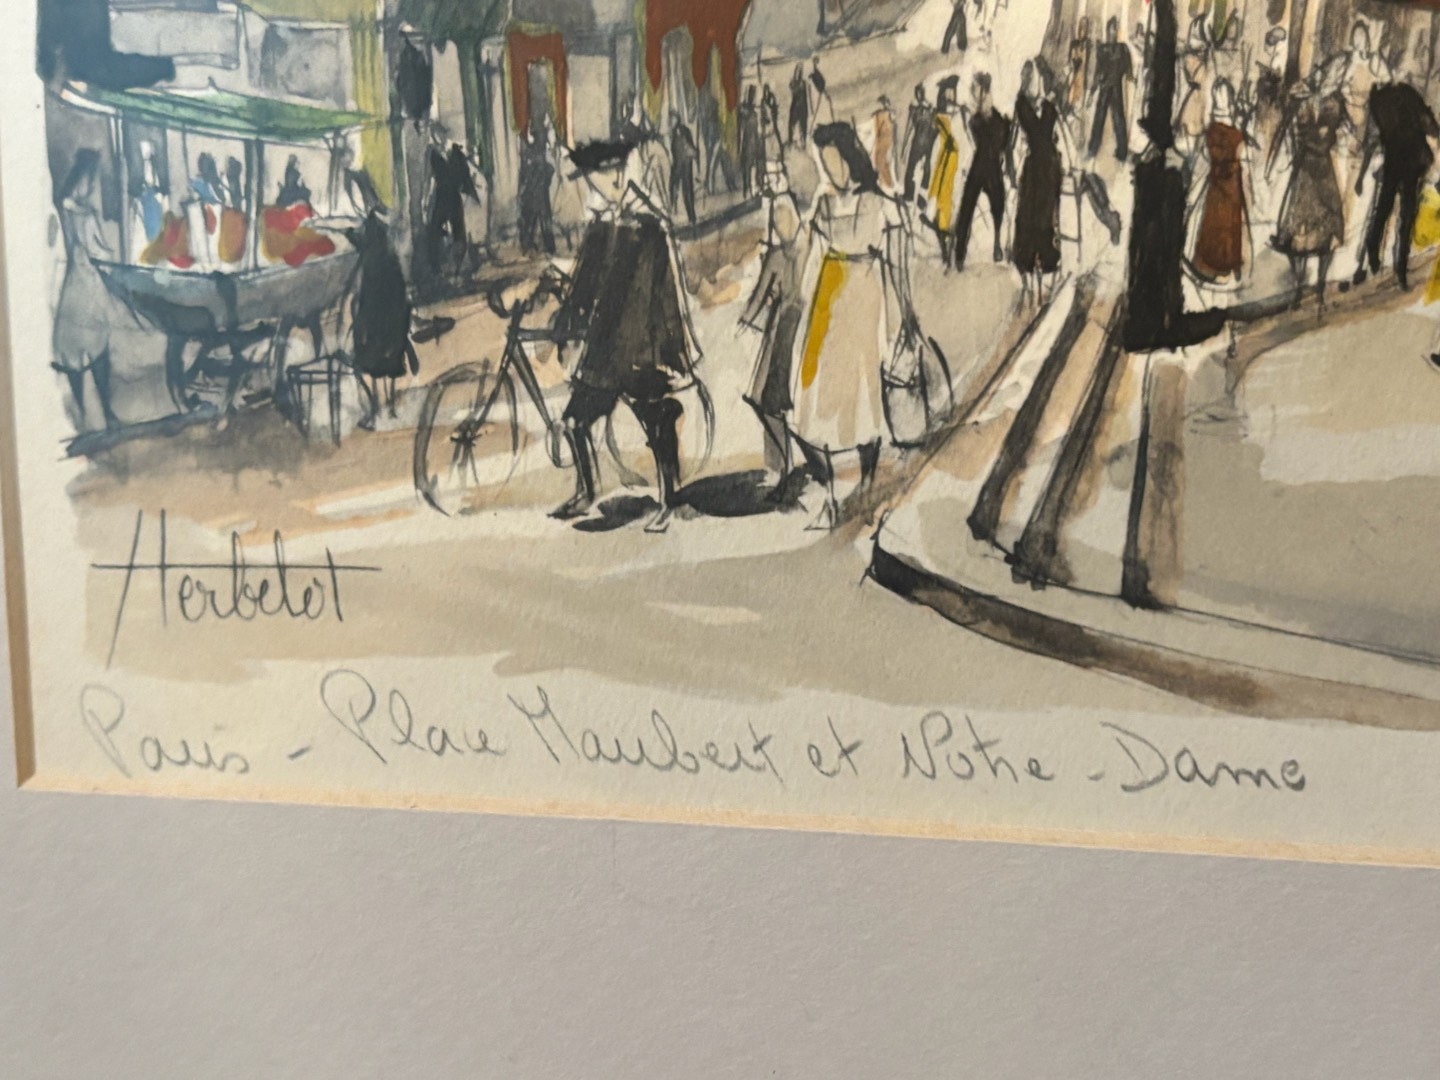 Herbelot
Paris - Place Maubert et Notre-Dame